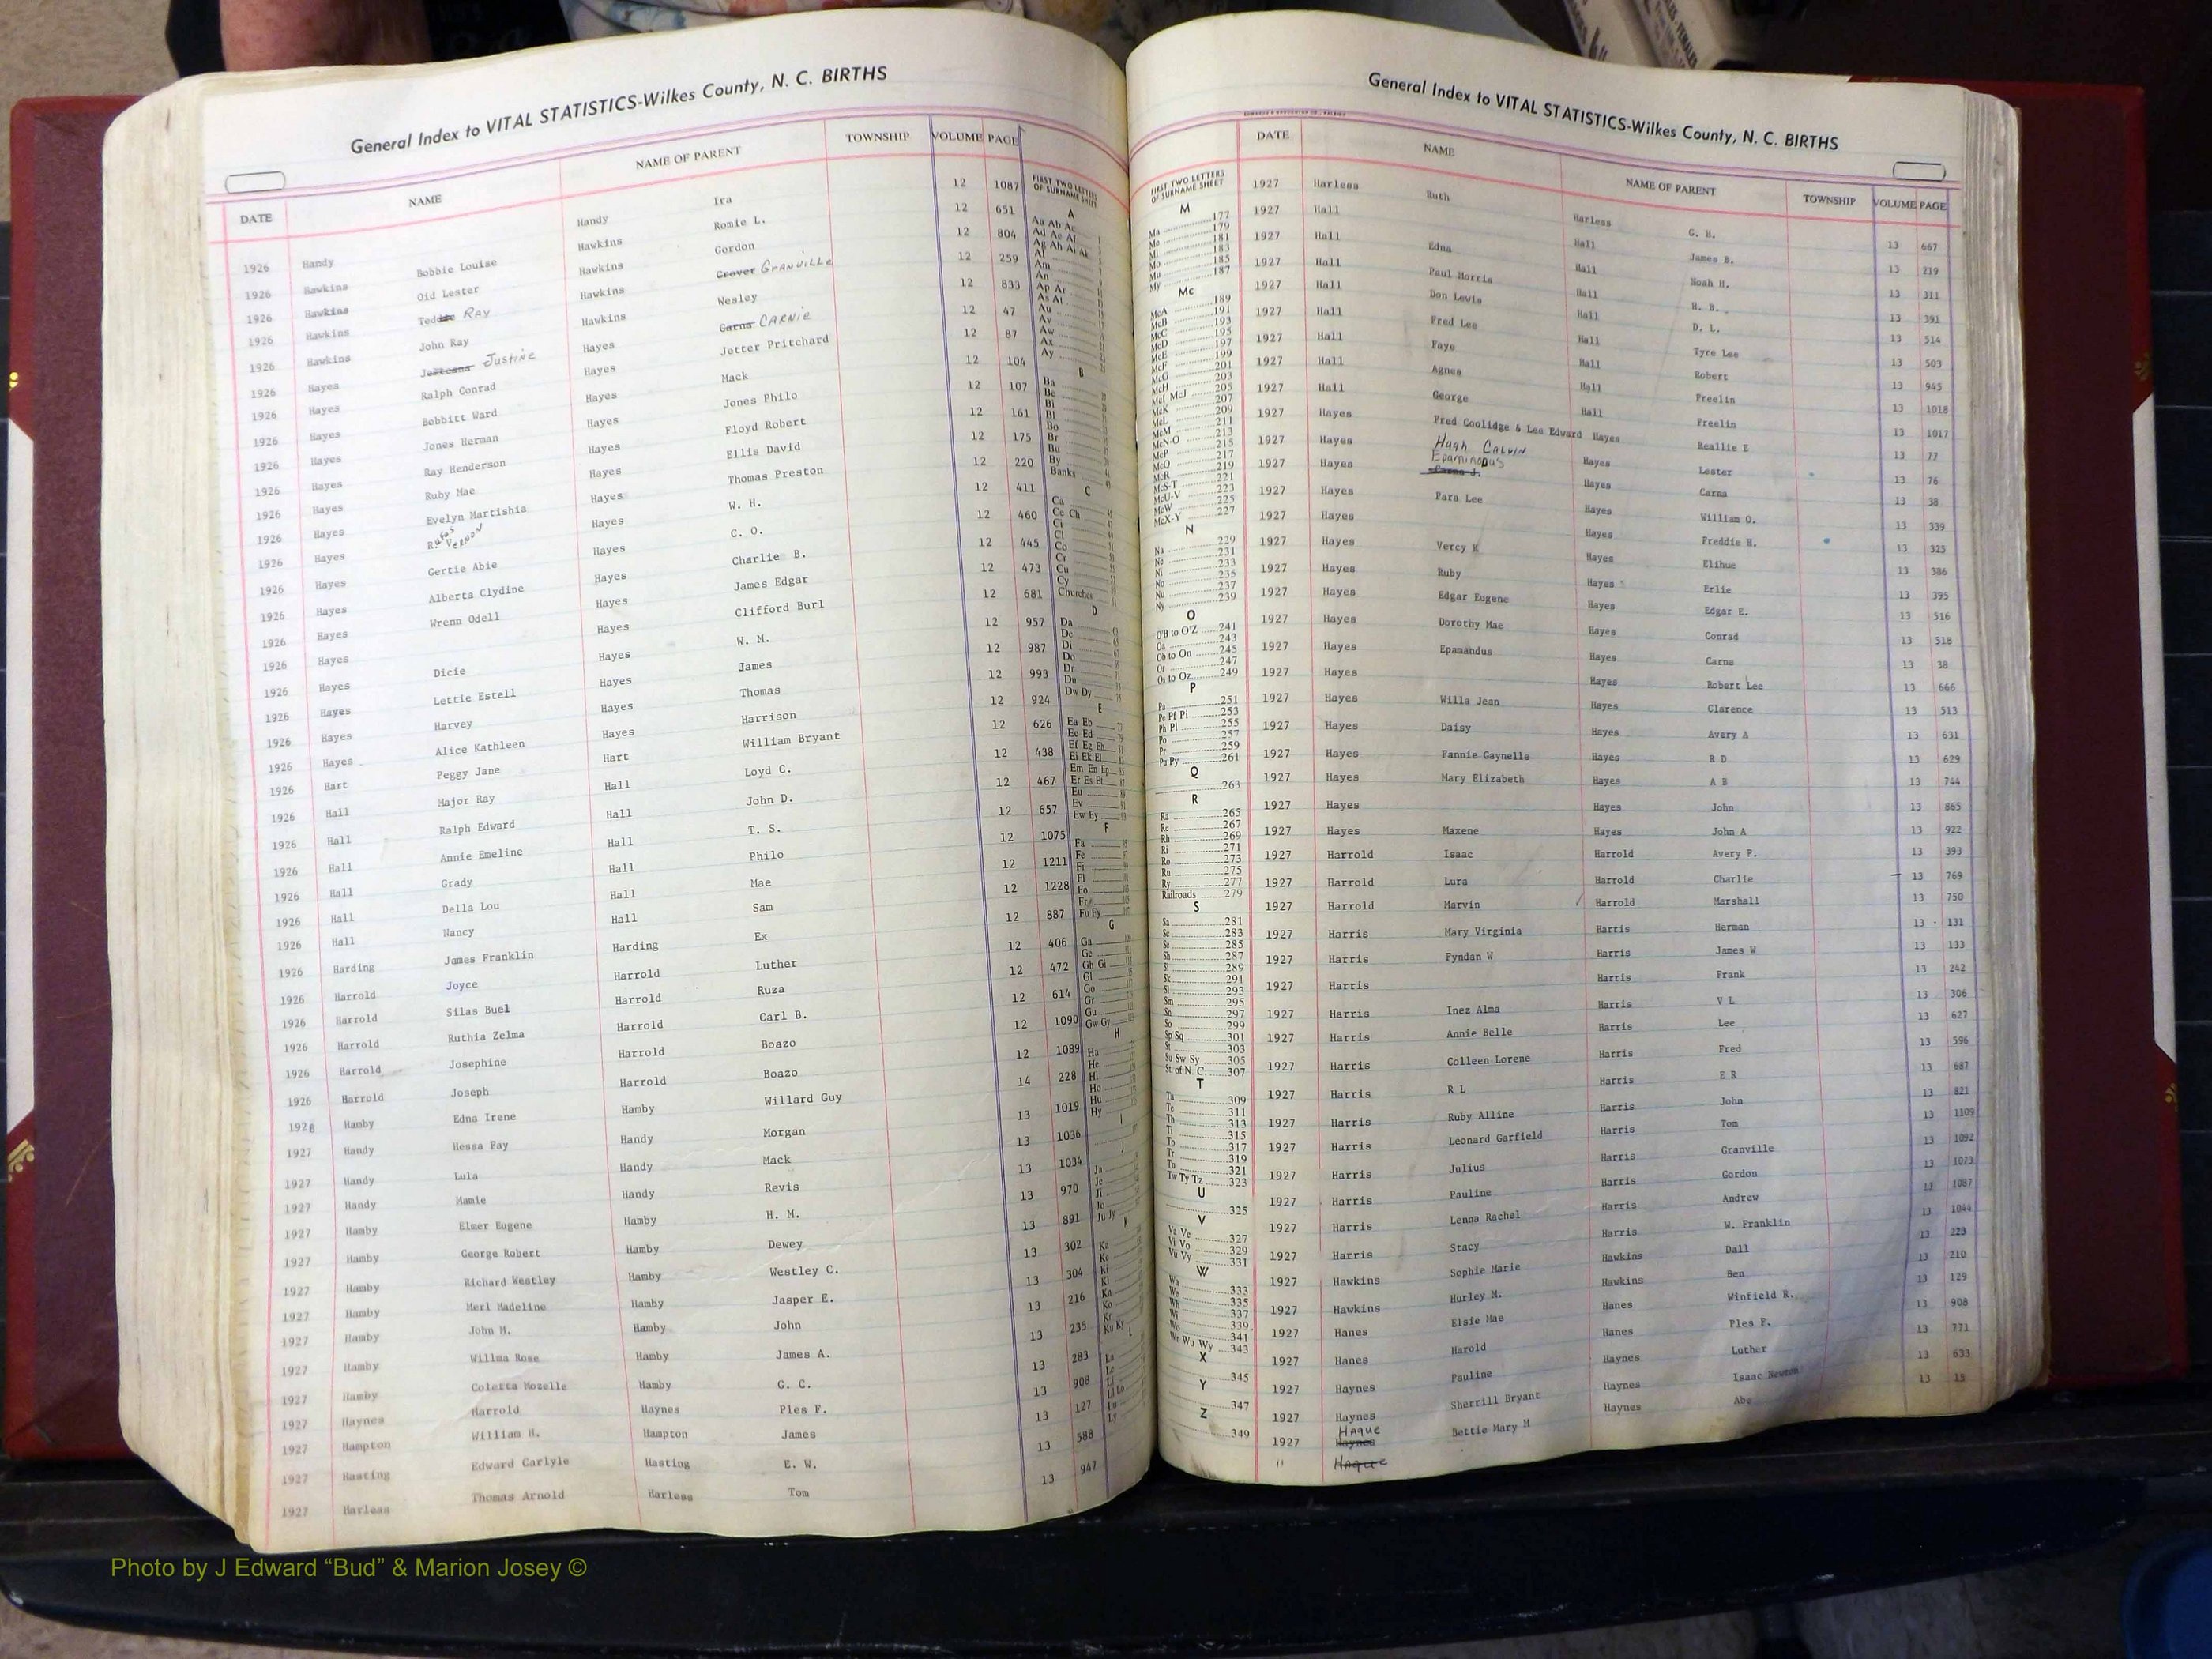 General Index to VITAL STATISTICS-Wilkes County, N. C. BIRTHS
DATE NAME NAME OF PARENT TOWNSHIP VOLUME PAGE
1926 Handy Handy Ira 12 1087
1926 Hawkins Bobbie Louise Hawkins Romie L. 12 651
1926 Hawkins Oid Lester Hawkins Gordon 12 804
1926 Hawkins Teddie RAY Hawkins Grover GRANVILLE 12 259
1926 Hawkins John Ray Hawkins Wesley 12 833
1926 Hayes Justeana Justine Hayes Garna CARNIE 12 47
1926 Hayes Ralph Conrad Hayes Jetter Pritchard 12 87
1926 Hayes Bobbitt Ward Hayes Mack 12 104
1926 Hayes Jones Herman Hayes Jones Philo 12 107
1926 Hayes Ray Henderson Hayes Floyd Robert 12 161
1926 Hayes Ruby Mae Hayes Ellis David 12 175
1926 Hayes Evelyn Martishia Hayes Thomas Preston 12 220
1926 Hayes Rufus VERNON Hayes W. H. 12 411
1926 Hayes Gertie Abie Hayes C. O. 12 460
1926 Hayes Alberta Clydine Hayes Charlie B. 12 445
1926 Hayes Wrenn Odell Hayes James Edgar 12 473
1926 Hayes Hayes Clifford Burl 12 681
1926 Hayes Dicie Hayes W. M. 12 957
1926 Hayes Lettie Estell Hayes James 12 987
1926 Hayes Harvey Hayes Thomas 12 993
1926 Hayes Alice Kathleen Hayes Harrison 12 924
1926 Hart Peggy Jane Hart William Bryant 12 626
1926 Hall Major Ray Hall Loyd C. 12 438
1926 Hall Ralph Edward Hall John D. 12 467
1926 Hall Annie Emeline Hall T. S. 12 657
1926 Hall Grady Hall Philo 12 1075
1926 Hall Della Lou Hall Mae 12 1211
1926 Hall Nancy Hall Sam 12 1228
1926 Harding James Franklin Harding Ex 12 887
1926 Harrold Joyce Harrold Luther 12 406
1926 Harrold Silas Buel Harrold Ruza 12 472
1926 Harrold Ruthia Zelma Harrold Carl B. 12 614
1926 Harrold Josephine Harrold Boazo 12 1090
1926 Harrold Joseph Harrold Boazo 12 1089
1928 Hamby Edna Irene Hamby Willard Guy 14 228
1927 Handy Hessa Fay Handy Morgan 13 1019
1927 Handy Lula Handy Mack 13 1036
1927 Handy Mamie Handy Revis 13 1034
1927 Hamby Elmer Eugene Hamby H. M. 13 970
1927 Hamby George Robert Hamby Dewey 13 891
1927 Hamby Richard Westley Hamby Westley C. 13 302
1927 Hamby Merl Madeline Hamby Jasper E. 13 304
1927 Hamby John M. Hamby John 13 216
1927 Hamby Willma Rose Hamby James A. 13 235
1927 Hamby Coletta Mozelle Hamby G. C. 13 283
1927 Haynes Harrold Haynes Ples F. 13 908
1927 Hampton William H. Hampton James 13 127
1927 Hasting Edward Carlyle Hasting E. W. 13 588
1927 Harless Thomas Arnold Harless Tom 13 947
FIRST TWO LETTERS
OF SURNAME SHEET
A
Aa Ab Ac
Ad Ae Af
Ag Ah Ai Ak
Al
Am
An
Ap Ar
As At
Au
Av
Aw
Ax
Ay
B
Ba
Be
Bi
Bl
Bo
Br
Bu
By
Banks
C
Ca
Ce Ch
Ci
Cl
Co
Cr
Cu
Cy
Churches
D
Da
De
Di
Do
Dr
Du
Dw Dy
E
Ea Eb
Ec Ed
Ef Eg Eh
Ei Ek El
Em En Ep
Er Es Et
Eu
Ev
Ew Ey
F
Fa
Fe
Fi
Fl
Fo
Fr
Fu Fy
G
Ga
Ge
Gh Gi
Gl
Go
Gr
Gu
Gw Gy
H
Ha
He
Hi
Ho
Hu
Hy
I
J
Ja
Je
Ji
Jo
Ju Jy
K
Ka
Ke
Ki
Kl
Kn
Ko
Kr
Ku Ky
L
La
Le
Li
Ll Lo
Lu
Ly
General Index to VITAL STATISTICS-Wilkes County, N. C. BIRTHS
FIRST TWO LETTERS
OF SURNAME SHEET
M
Ma 177
Me 179
Mi 181
183
Mo 185
Mu 187
My
Mc
McA 189
McB 191
McC 193
McD 195
McE 197
McF 199
McG 201
McH 203
McI McJ 205
McK 207
McL 209
McM 211
McN-O 213
McP 215
McQ 217
McR 219
McS-T 221
McU-V 223
McW 225
McX-Y 227
N
Na 229
Ne 231
Ni 233
No 235
Nu 237
Ny 239
O
O'B to O'Z 241
Oa 243
Ob to On 245
Or 247
Os to Oz 249
P
Pa 251
Pe Pf Pi 253
Ph Pl 255
Po 257
Pr 259
Pu Py 261
Q
263
R
Ra 265
Re 267
Rh 269
Ri 271
Ro 273
Ru 275
Ry 277
Railroads 279
S
Sa 281
Sc 283
Se 285
Sh 287
Si 289
Sk 291
Sl 293
Sm 295
Sn 297
So 299
Sp Sq 301
St 303
Su Sw Sy 305
St. of N. C. 307
T
Ta 309
Te 311
Th 313
Ti 315
To 317
Tr 319
Tu 321
Tw Ty Tz 323
U
325
V
Va Ve 327
Vi Vo 329
Vu Vy 331
W
Wa 333
We 335
Wh 337
Wi 339
Wo 341
Wr Wu Wy 343
X
345
Y
347
Z
349
DATE NAME NAME OF PARENT TOWNSHIP VOLUME PAGE
1927 Harless Ruth Harless G. H. 13 667
1927 Hall Hall James B. 13 219
1927 Hall Edna Hall Noah H. 13 311
1927 Hall Paul Morris Hall H. B. 13 391
1927 Hall Don Lewis Hall D. L. 13 514
1927 Hall Fred Lee Hall Tyre Lee 13 503
1927 Hall Faye Hall Robert 13 945
1927 Hall Agnes Hall Freelin 13 1018
1927 Hall George Hall Freelin 13 1017
1927 Hayes Fred Coolidge & Lee Edward Hayes Reallie E 13 77
1927 Hayes Hugh CALVIN Hayes Lester 13 76
1927 Hayes Epaminodus Carna J. Hayes Carna 13 38
1927 Hayes Para Lee Hayes William O. 13 339
1927 Hayes Hayes Freddie H. 13 325
1927 Hayes Vercy K Hayes Elihue 13 386
1927 Hayes Ruby Hayes Erlie 13 395
1927 Hayes Edgar Eugene Hayes Edgar E. 13 516
1927 Hayes Dorothy Mae Hayes Conrad 13 518
1927 Hayes Epamandus Hayes Carna 13 38
1927 Hayes Hayes Robert Lee 13 666
1927 Hayes Willa Jean Hayes Clarence 13 513
1927 Hayes Daisy Hayes Avery A 13 631
1927 Hayes Fannie Gaynelle Hayes R D 13 629
1927 Hayes Mary Elizabeth Hayes A B 13 744
1927 Hayes Hayes John 13 865
1927 Hayes Maxene Hayes John A 13 922
1927 Harrold Isaac Harrold Avery P. 13 393
1927 Harrold Lura Harrold Charlie 13 769
1927 Harrold Marvin Harrold Marshall 13 750
1927 Harris Mary Virginia Harris Herman 13 131
1927 Harris Fyndan W Harris James W 13 133
1927 Harris Harris Frank 13 242
1927 Harris Inez Alma Harris V L 13 306
1927 Harris Annie Belle Harris Lee 13 627
1927 Harris Colleen Lorene Harris Fred 13 596
1927 Harris R L Harris E R 13 687
1927 Harris Ruby Alline Harris John 13 821
1927 Harris Leonard Garfield Harris Tom 13 1109
1927 Harris Julius Harris Granville 13 1092
1927 Harris Pauline Harris Gordon 13 1073
1927 Harris Lenna Rachel Harris Andrew 13 1087
1927 Harris Stacy Harris W. Franklin 13 1044
1927 Hawkins Sophie Marie Hawkins Dall 13 223
1927 Hawkins Hurley M. Hawkins Ben 13 210
1927 Hanes Elsie Mae Hanes Winfield R. 13 129
1927 Hanes Harold Hanes Ples F. 13 908
1927 Haynes Pauline Haynes Luther 13 771
1927 Haynes Sherrill Bryant Haynes Isaac Newton 13 633
HAGUE
1927 Haynes Bettie Mary M Haynes Abe 13 13
"
Photo by J Edward “Bud” & Marion Josey ©